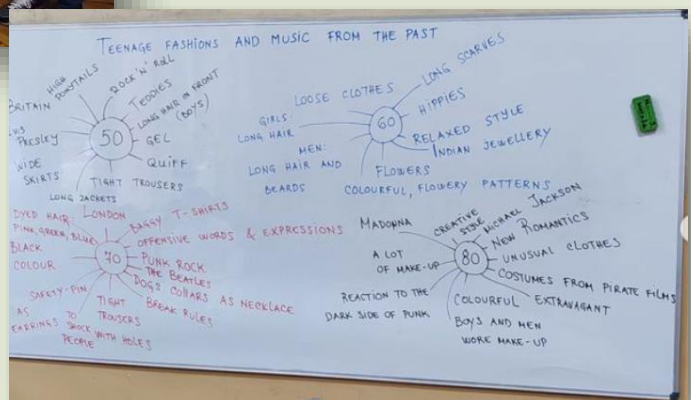 TEENAGE FASHIONS AND MUSIC FROM THE PAST
50
HIGH
PONYTAILS
ROCK 'N' ROLL
TEDDIES
LONG HAIR IN FRONT
(BOYS)
GEL
QUIFF
TIGHT TROUSERS
LONG JACKETS
WIDE
SKIRTS
PRESLEY
BRITAIN
60
LOOSE CLOTHES
LONG SCARVES
HIPPIES
RELAXED STYLE
INDIAN JEWELLERY
FLOWERS
COLOURFUL, FLOWERY PATTERNS
MEN:
LONG HAIR AND
BEARDS
GIRLS:
LONG HAIR
70
DYED HAIR:
PINK, GREEN, BLUE
LONDON
BAGGY T-SHIRTS
OFFENSIVE WORDS & EXPRESSIONS
PUNK ROCK
THE BEATLES
DOGS COLLARS AS NECKLACE
BREAK RULES
TIGHT
TROUSERS
WITH HOLES
TO
SHOCK
PEOPLE
SAFETY-PIN
AS
EARRINGS
BLACK
COLOUR
80
MADONNA
CREATIVE
STYLE
MICHAEL JACKSON
NEW ROMANTICS
UNUSUAL CLOTHES
COSTUMES FROM PIRATE FILMS
EXTRAVAGANT
COLOURFUL
BOYS AND MEN
WORE MAKE-UP
REACTION TO THE
DARK SIDE OF PUNK
A LOT
OF MAKE-UP